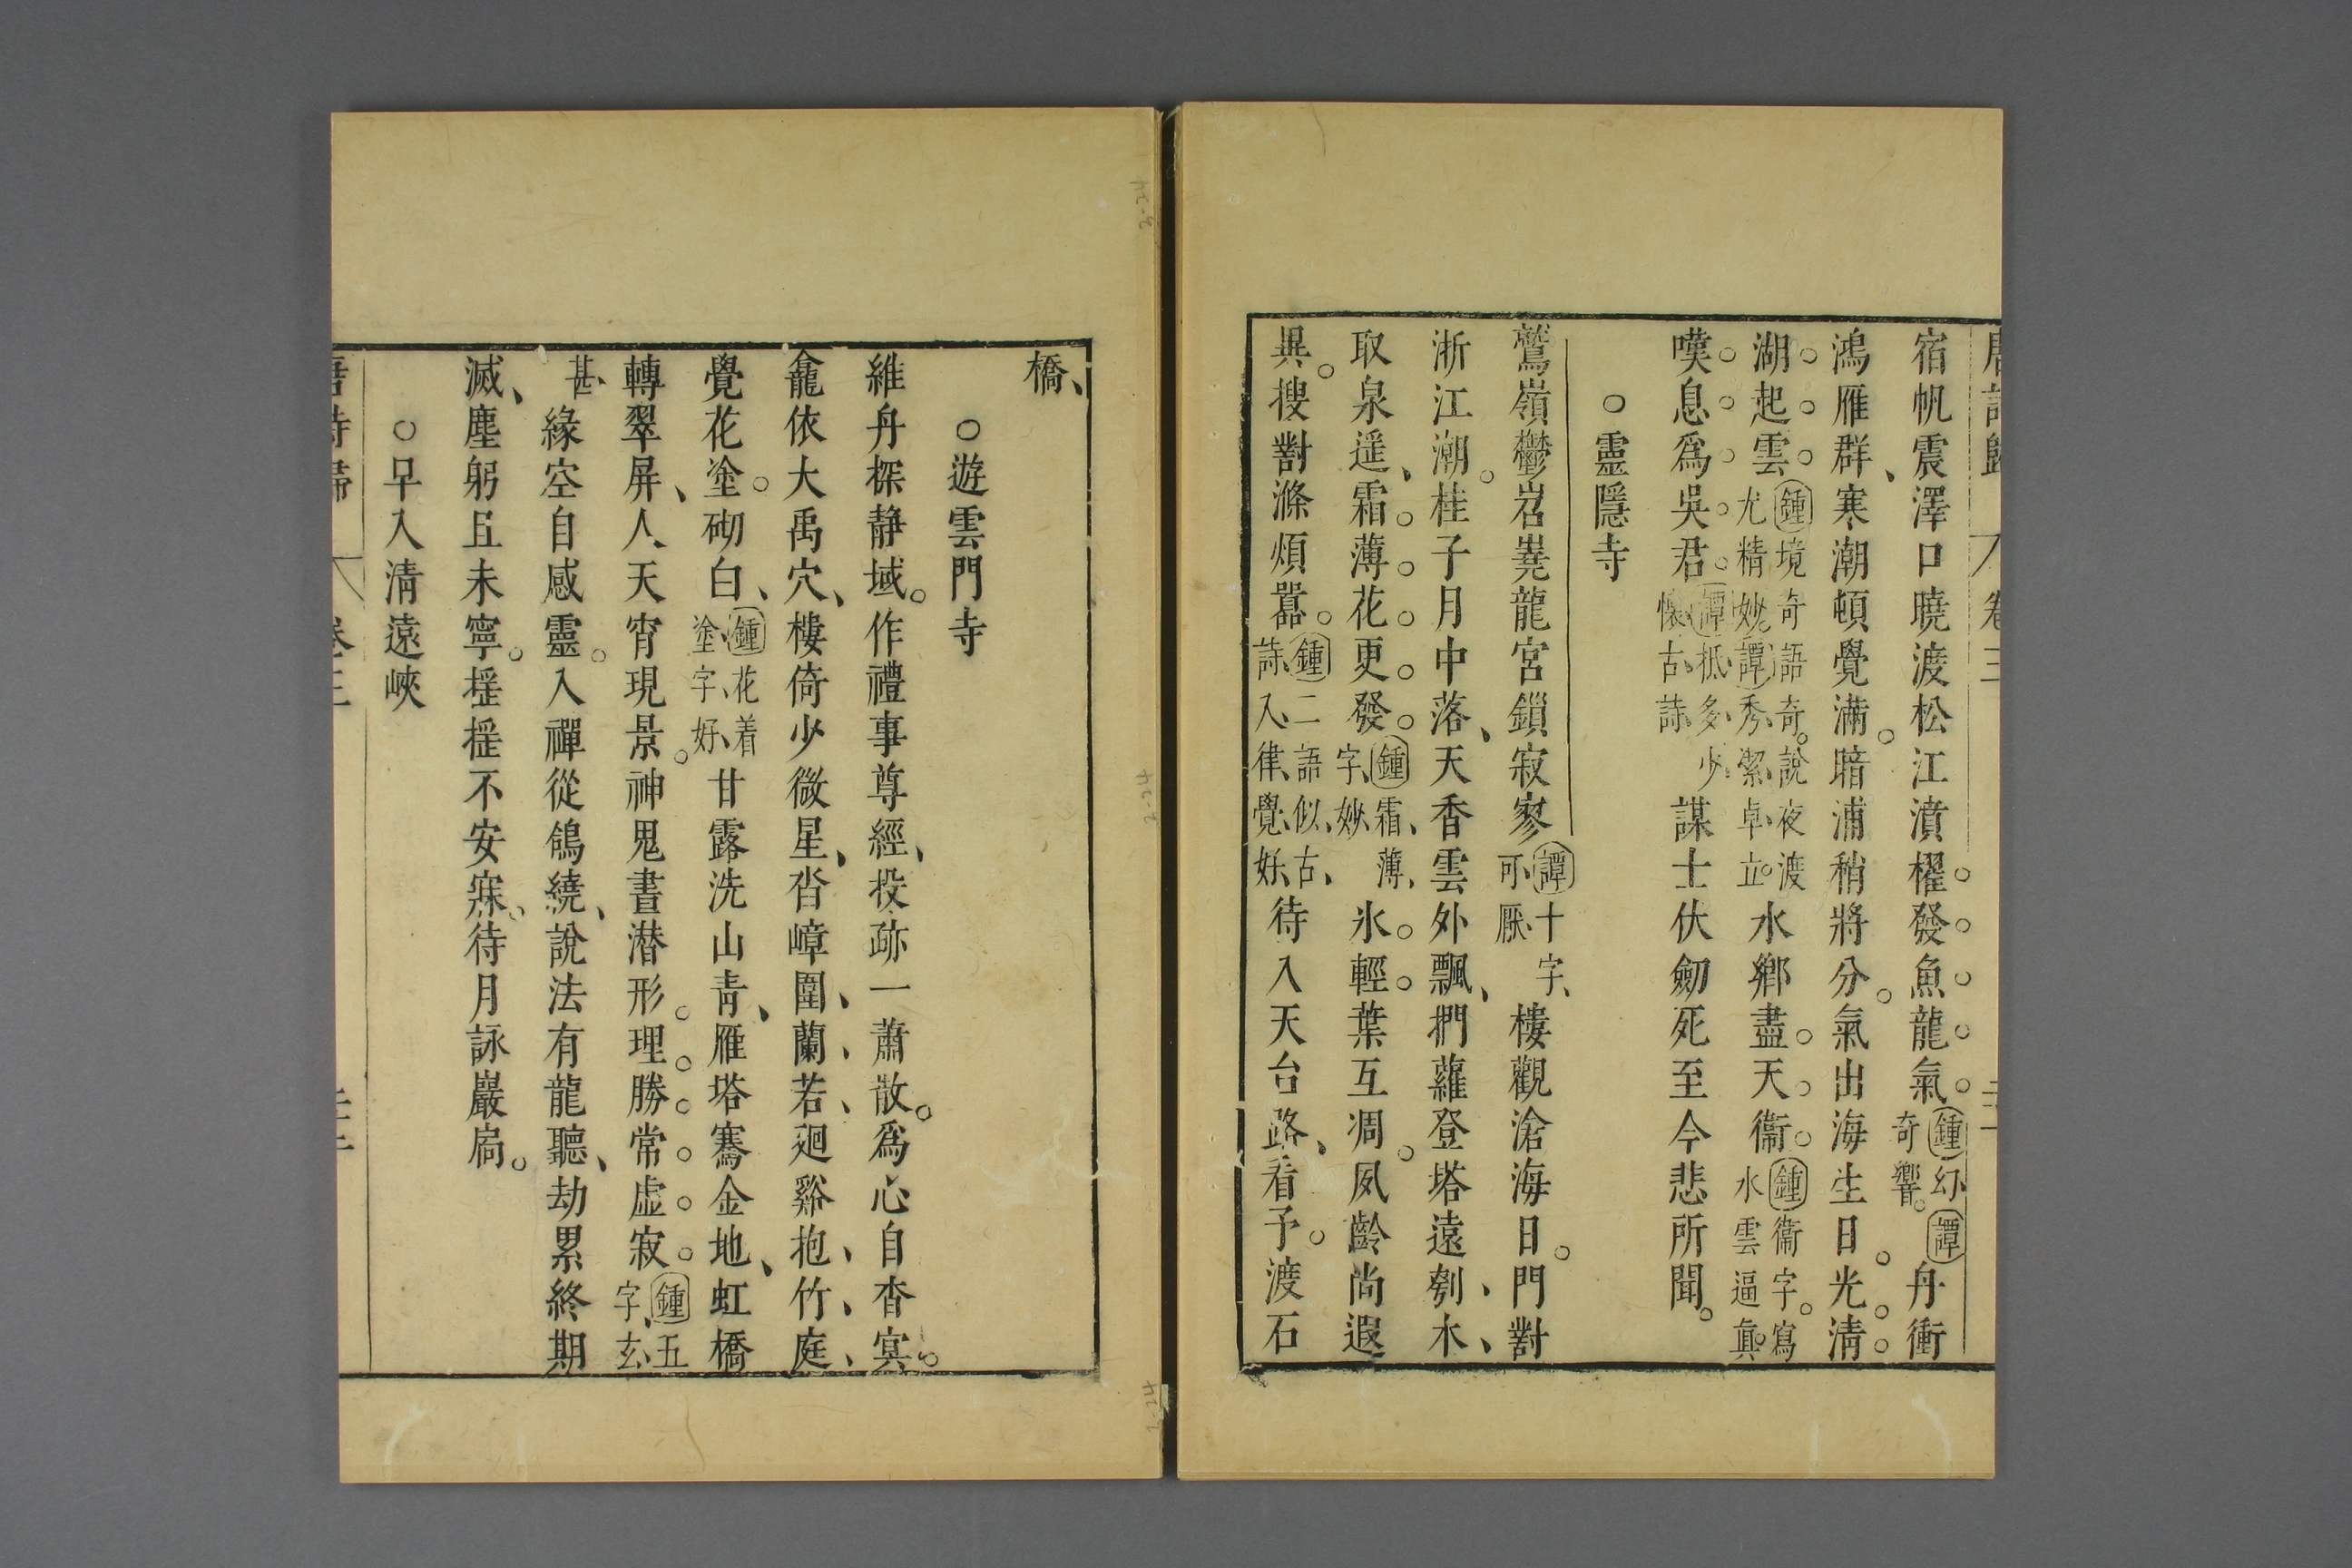 唐詩歸 卷三
宿帆震澤口曉渡松江濆櫂發魚龍氣鍾幻奇響譚舟衝
鴻雁群寒潮頓覺滿暗浦稍將分氣出海生日光清
湖起雲鍾境奇語奇說夜渡尤精妙譚秀潔卓立水鄉盡天衞鍾衞字寫水雲逼真
嘆息爲吳君譚抵多少懷古詩謀士伏劒死至今悲所聞
○靈隱寺
鷲嶺鬱岧嶤龍宮鎖寂寥譚十字可厭樓觀滄海日門對
浙江潮桂子月中落天香雲外飄捫蘿登塔遠刳木
取泉遥霜薄花更發鍾霜薄字妙氷輕葉互凋夙齡尚遐
異搜對滌煩囂鍾二語似古詩入律覺好待入天台路看予渡石
橋
○遊雲門寺
維舟探静域作禮事尊經投跡一蕭散爲心自杳冥
龕依大禹穴樓倚少微星沓嶂圍蘭若廻谿抱竹庭
覺花塗砌白鍾花着塗字好甘露洗山青雁塔騫金地虹橋
轉翠屏人天宵現景神鬼晝潜形理勝常虛寂鍾五字玄
甚緣空自感靈入禪從鴿繞說法有龍聽劫累終期
滅塵躬且未寧摇摇不安寐待月詠巖扃
○早入清遠峽
唐詩歸 卷三